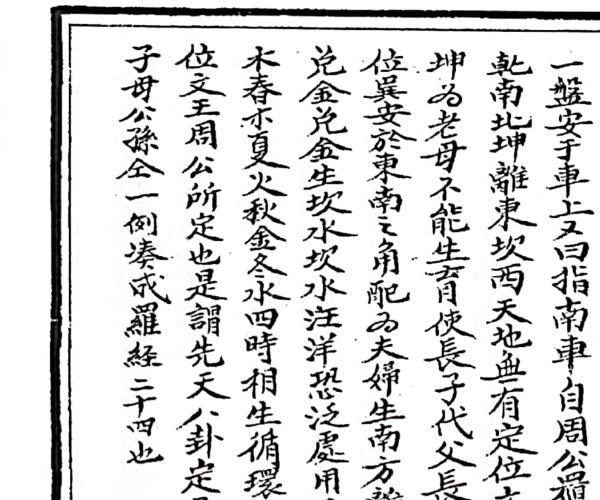 一盤安于車上又曰指南車自周公
乾南北坤離東坎西天地無有定位
坤为老母不能生育使長子代父長
位巽安於東南之角配为夫婦生南方
兌金兌金生坎水坎水汪洋恐泛處用
木春木夏火秋金冬水四時相生循環
位文王周公所定也是謂先天八卦定
子母公孫仝一例凑成羅經二十四也